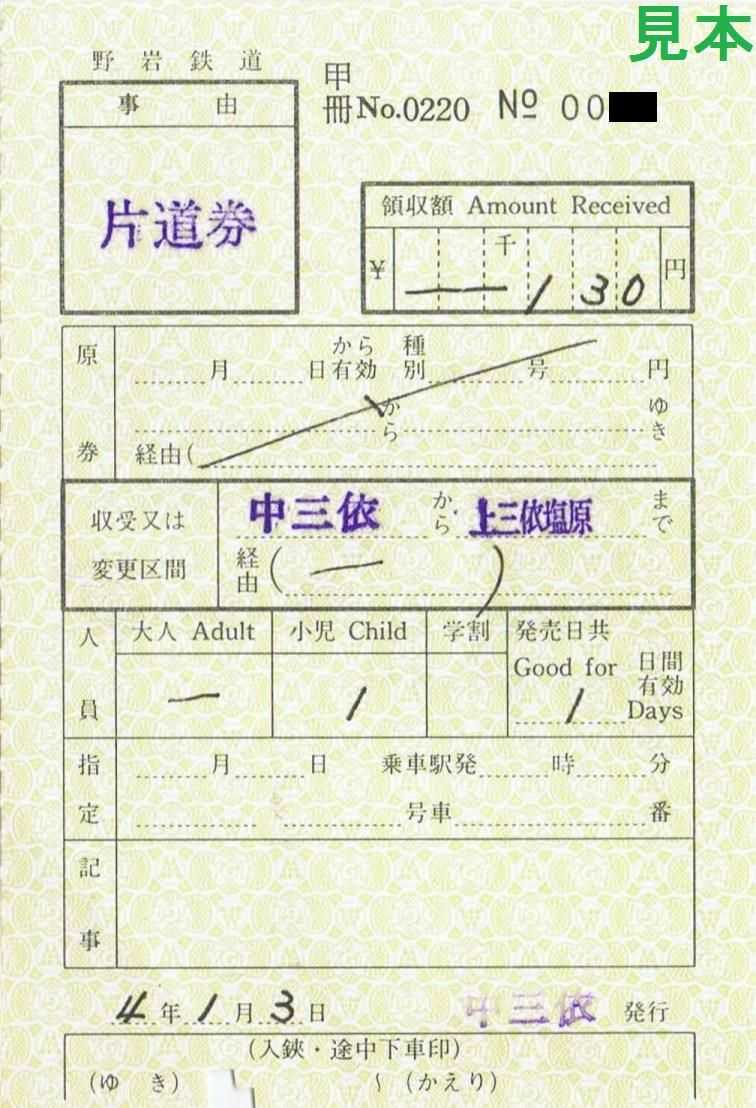 見本
野岩鉄道
甲
冊No.0220 № 00
事由
片道券
領収額 Amount Received
千
¥ ——130 円
原券
から 種
月 日有効 別 号 円
から ゆき
経由(
収受又は
変更区間
中三依 から 上三依塩原 まで
経由 ( — )
人員
大人 Adult 小児 Child 学割 発売日共
Good for 日間
有効
— 1 1 Days
指定
月 日 乗車駅発 時 分
号車 番
記事
4年1月3日 中三依 発行
(入鋏・途中下車印)
(ゆき) ~ (かえり)